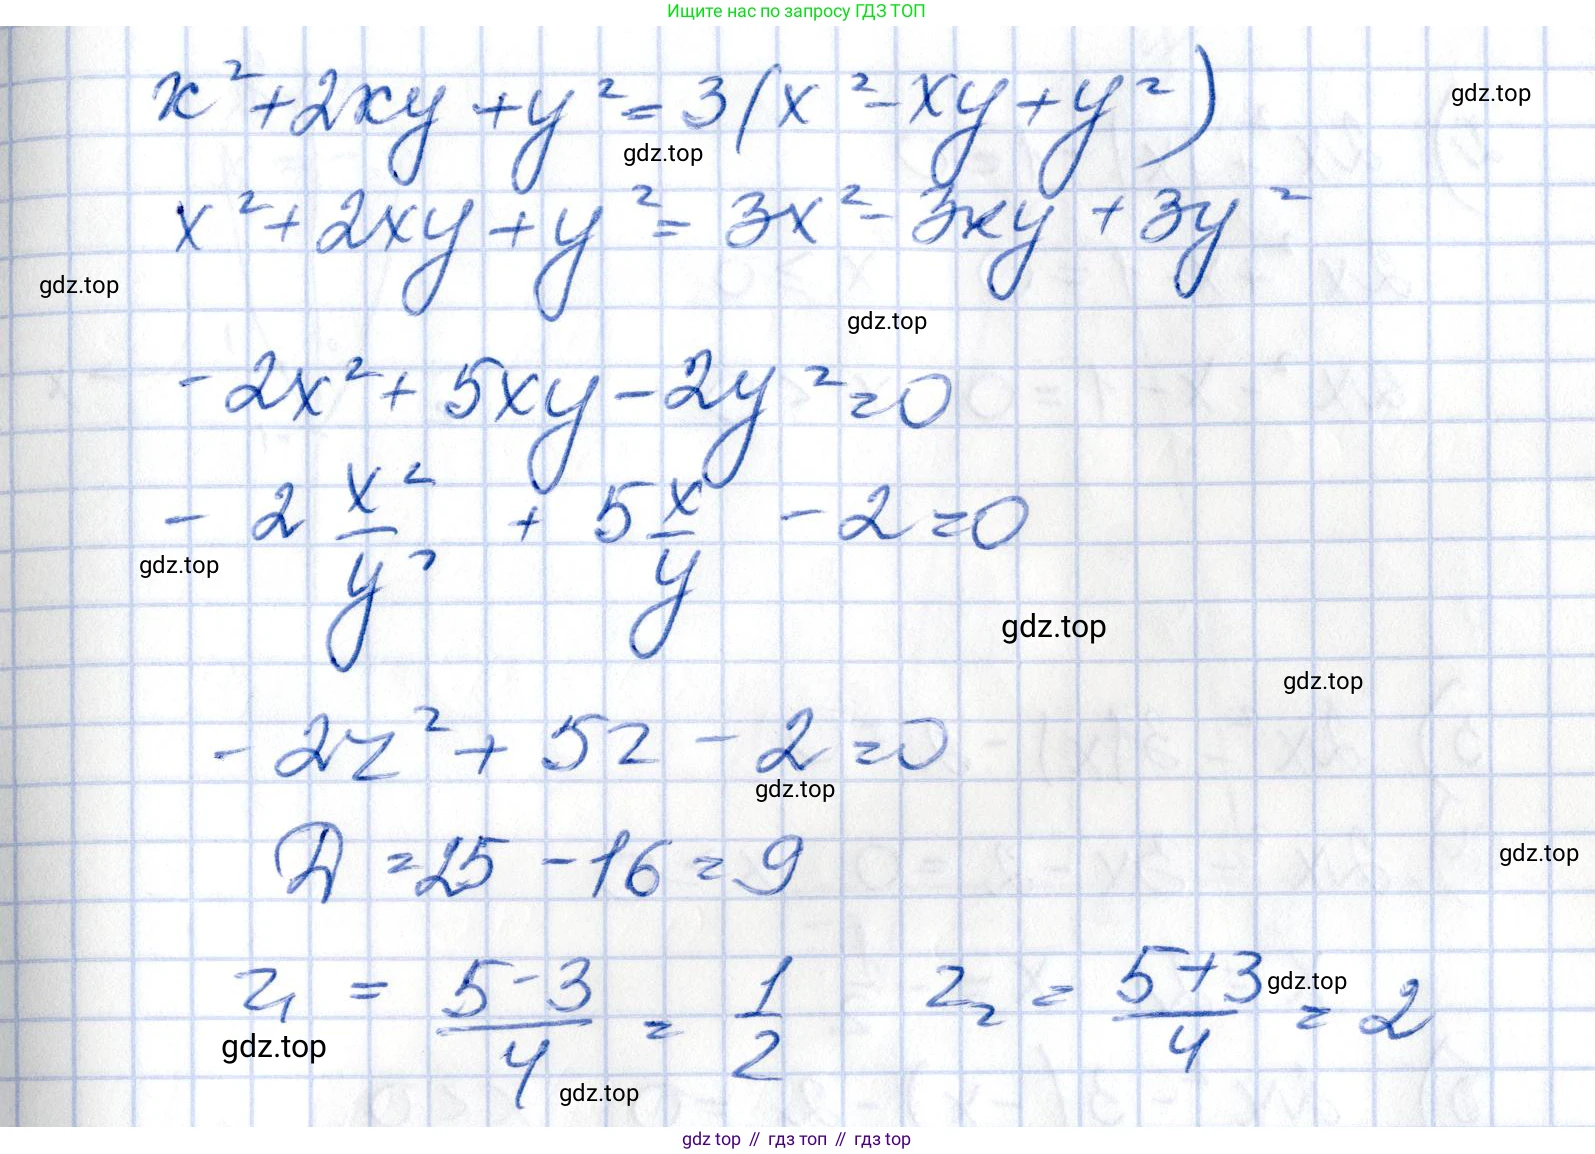 Ищите нас по запросу ГДЗ ТОП
x² + 2xy + y² = 3(x² - xy + y²)
gdz.top
gdz.top
x² + 2xy + y² = 3x² - 3xy + 3y²
gdz.top
gdz.top
-2x² + 5xy - 2y² = 0
-2 x²/y² + 5 x/y - 2 = 0
gdz.top
gdz.top
gdz.top
-2z² + 5z - 2 = 0
gdz.top
Д = 25 - 16 = 9
gdz.top
z₁ = (5-3)/4 = 1/2 z₂ = (5+3)/4 = 2
gdz.top
gdz.top
gdz.top
gdz top // гдз топ // gdz top